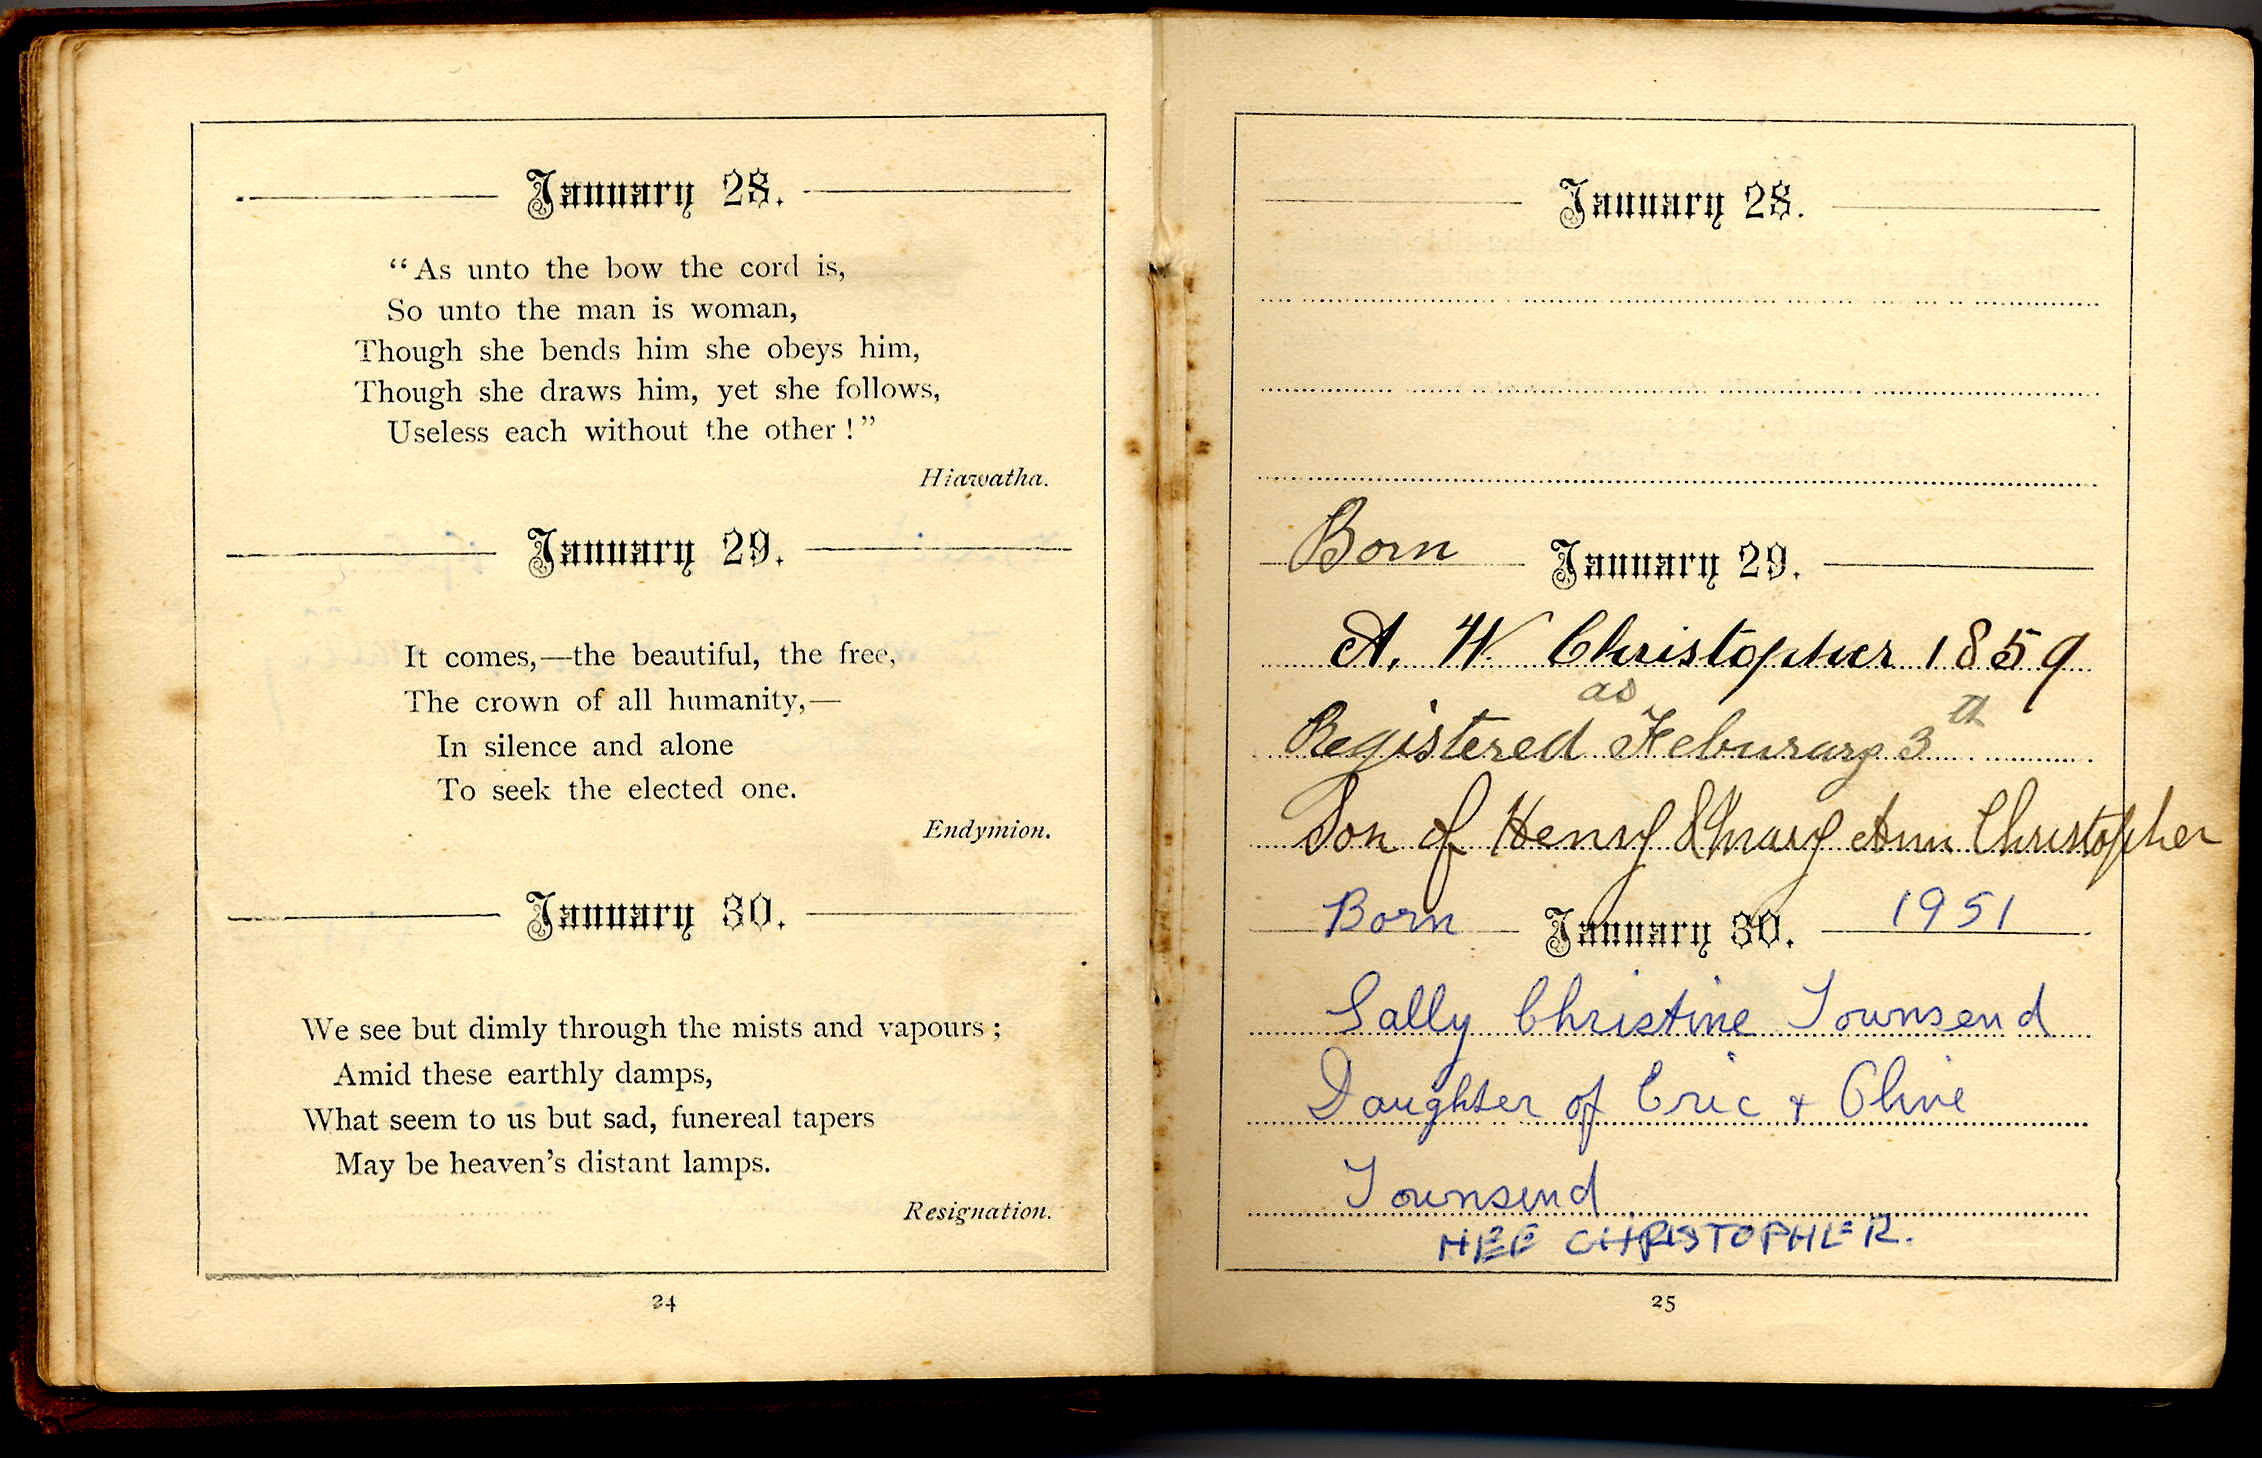 January 28.
"As unto the bow the cord is,
So unto the man is woman,
Though she bends him she obeys him,
Though she draws him, yet she follows,
Useless each without the other!"
Hiawatha.
January 29.
It comes,—the beautiful, the free,
The crown of all humanity,—
In silence and alone
To seek the elected one.
Endymion.
January 30.
We see but dimly through the mists and vapours;
Amid these earthly damps,
What seem to us but sad, funereal tapers
May be heaven's distant lamps.
Resignation.
24
January 28.
Born January 29.
A. W. Christopher 1859
as
Registered Feburary 3th
Son of Henry & Mary Ann Christopher
Born January 30. 1951
Sally Christine Townsend
Daughter of Eric + Olive
Townsend
NEE CHRISTOPHER.
25